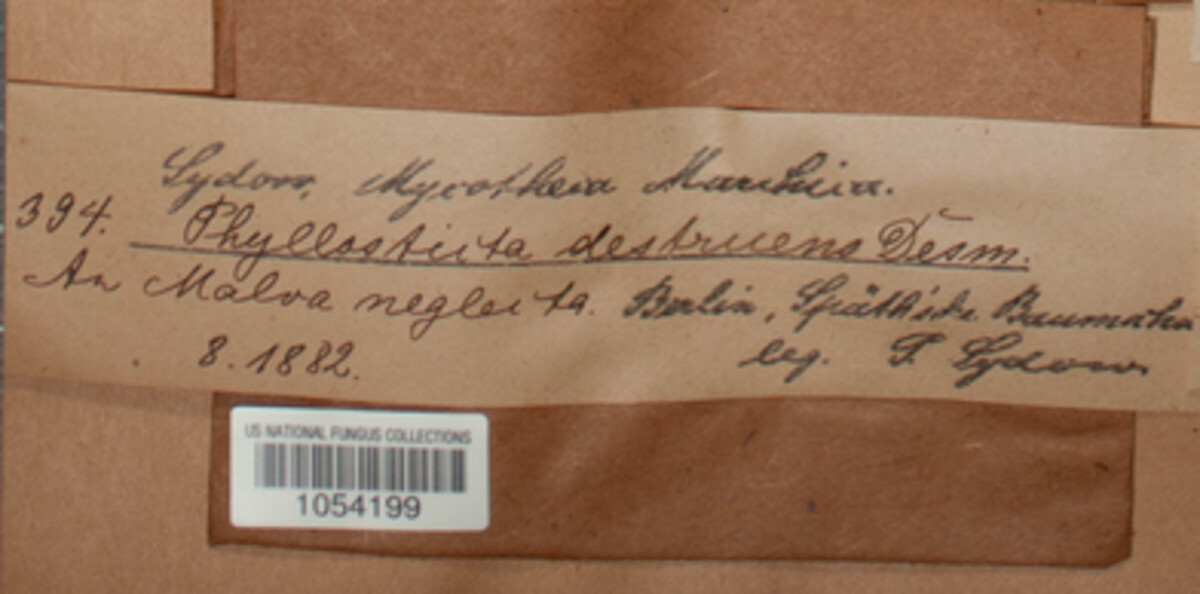 Sydow, Mycotheca Marchica.
394. Phyllosticta destruens Desm.
An Malva neglecta. Berlin, Späth'sche
8. 1882. leg. P. Sydow
US NATIONAL FUNGUS COLLECTIONS
1054199